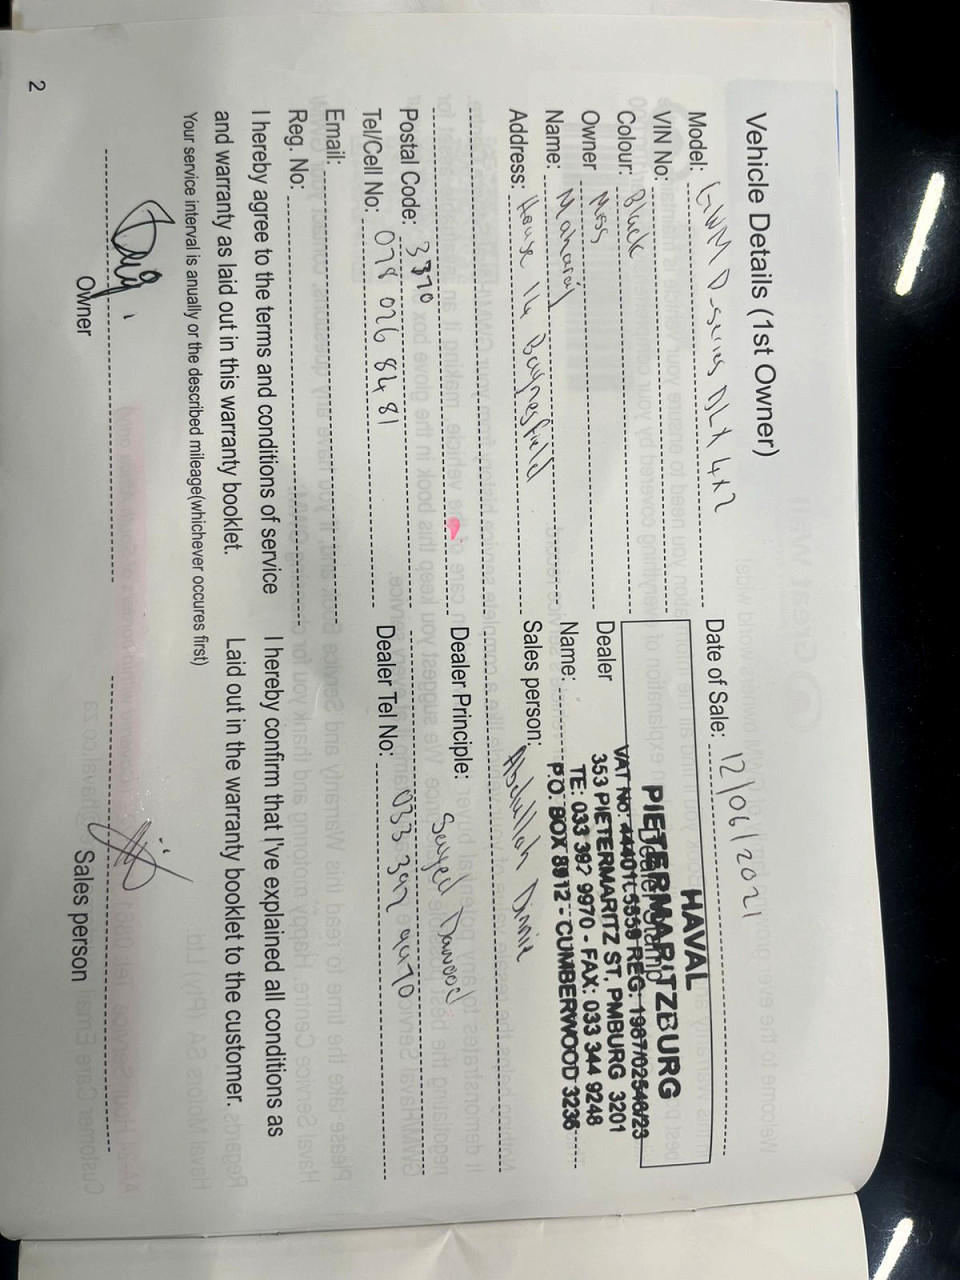 Vehicle Details (1st Owner)
Model: GWM P-series DLX 4x2
VIN No:
Colour: Black
Owner Moss
Name: Maharaj
Address: House 14 Baynesfield
Postal Code: 3770
Tel/Cell No: 078 026 8481
Email:
Reg. No:
I hereby agree to the terms and conditions of service
and warranty as laid out in this warranty booklet.
Your service interval is anually or the described mileage(whichever occures first)
Owner
Date of Sale: 12/06/2021
HAVAL
PIETERMARITZBURG
Dealer Stamp
353 PIETERMARITZ ST, PMBURG 3201
TE: 033 392 9970 - FAX: 033 344 9248
P.O. BOX 8912 - CUMBERWOOD 3235
Dealer
Name:
Sales person: Abdullah
Dealer Principle: Sayed Dawood
Dealer Tel No: 033 392 9970
I hereby confirm that I've explained all conditions as
Laid out in the warranty booklet to the customer.
Sales person
2